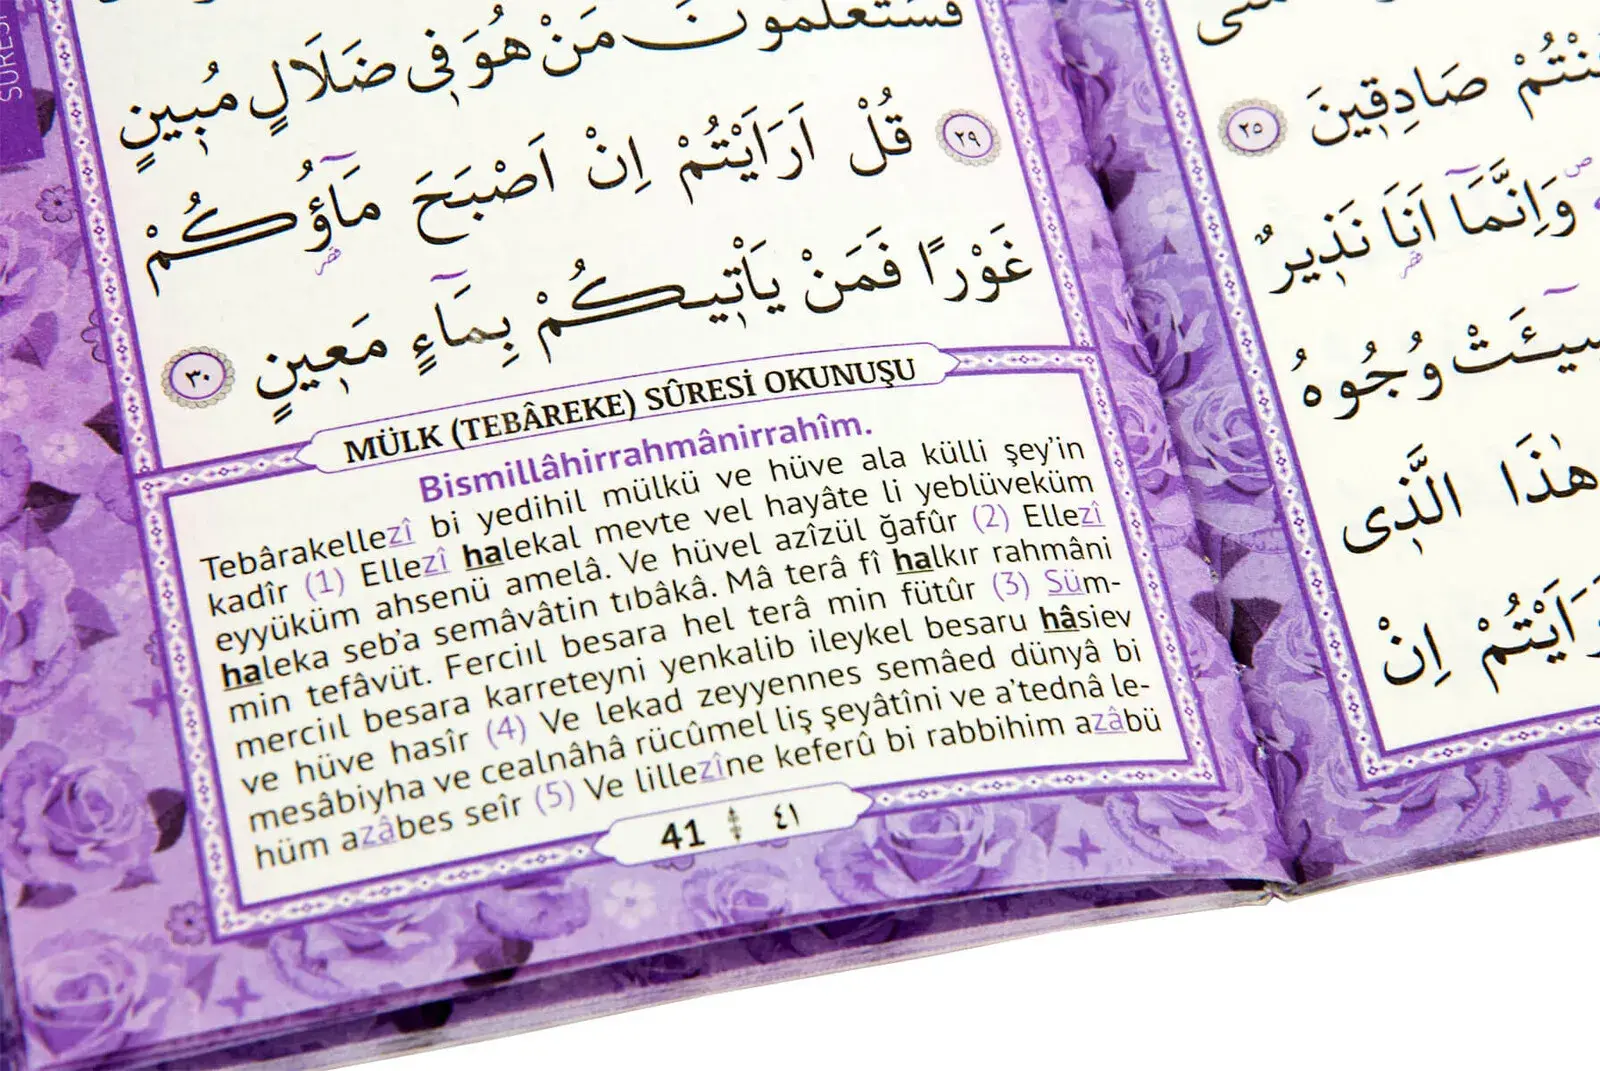 SÛRESİ
فَسَتَعْلَمُونَ مَنْ هُوَ فِي ضَلَالٍ مُبِينٍ
﴿٢٩﴾ قُلْ اَرَاَيْتُمْ اِنْ اَصْبَحَ مَٓاؤُ۬كُمْ
غَوْرًا فَمَنْ يَأْت۪يكُمْ بِمَٓاءٍ مَع۪ينٍ ﴿٣٠﴾
MÜLK (TEBÂREKE) SÛRESİ OKUNUŞU
Bismillâhirrahmânirrahîm.
Tebârakellezî bi yedihil mülkü ve hüve ala külli şey'in
kadîr (1) Ellezî halekal mevte vel hayâte li yeblüveküm
eyyüküm ahsenü amelâ. Ve hüvel azîzül ğafûr (2) Ellezî
haleka seb'a semâvâtin tıbâkâ. Mâ terâ fî halkır rahmâni
min tefâvüt. Ferciıl besara hel terâ min fütûr (3) Süm-
merciıl besara karreteyni yenkalib ileykel besaru hâsiev
ve hüve hasîr (4) Ve lekad zeyyennes semâed dünyâ bi
mesâbiyha ve cealnâhâ rücûmel liş şeyâtîni ve a'tednâ le-
hüm azâbes seîr (5) Ve lillezîne keferû bi rabbihim azâbü
41 ٤١
كُنْتُمْ صَادِق۪ينَ ﴿٢٥﴾
وَاِنَّمَٓا اَنَا۬ نَذ۪يرٌ
س۪ٓيـَٔتْ وُجُوهُ
هٰذَا الَّذ۪ي
اَرَاَيْتُمْ اِنْ